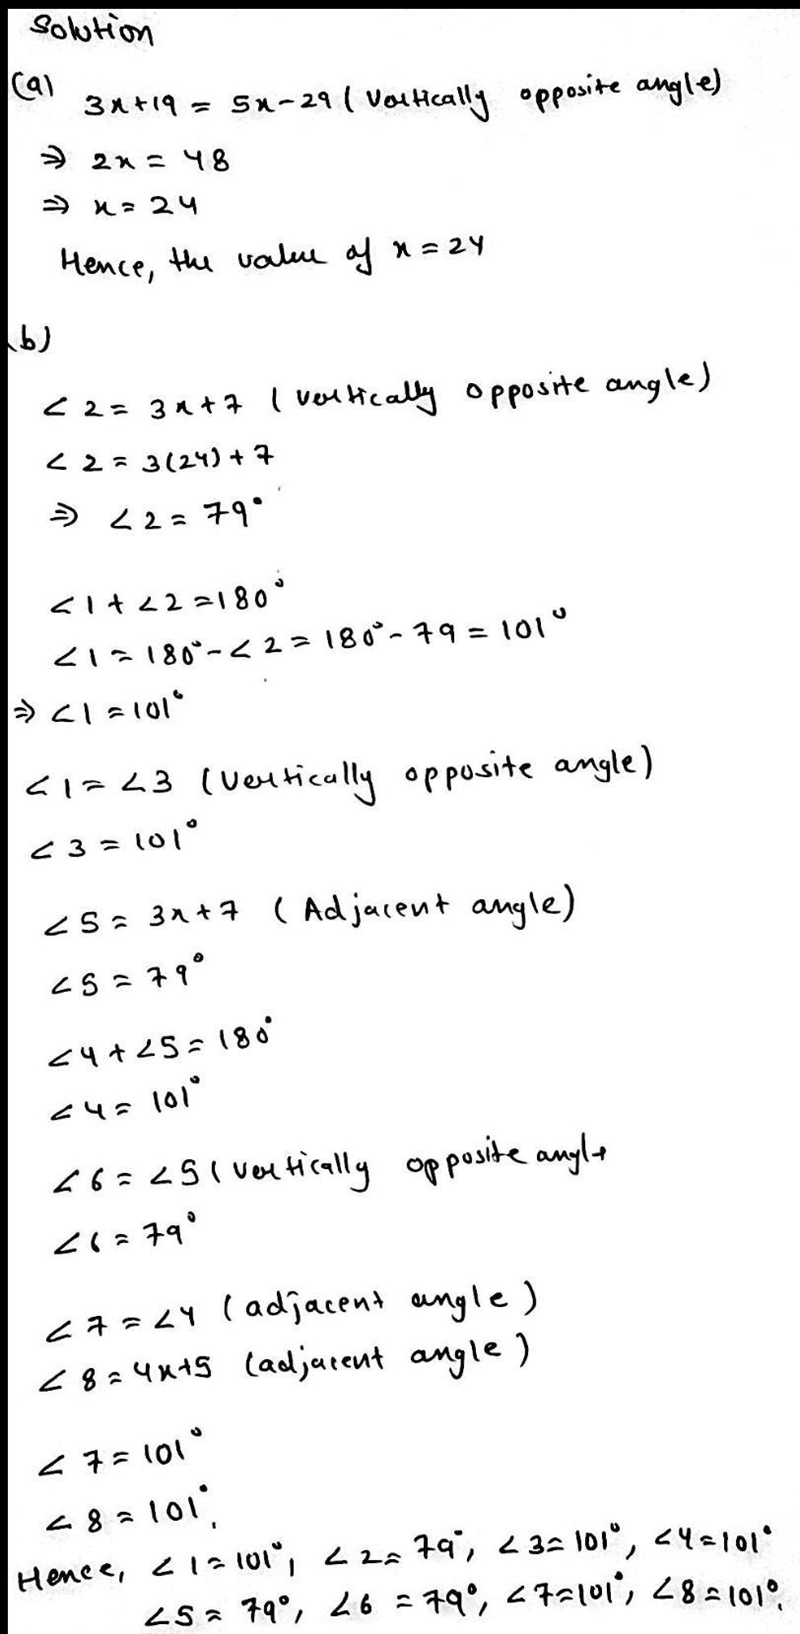 Solution
(a)
3x+19 = 5x-29 ( Vertically opposite angle)
⇒ 2x = 48
⇒ x = 24
Hence, the value of x = 24
(b)
∠2 = 3x+7 ( vertically opposite angle)
∠2 = 3(24)+7
⇒ ∠2 = 79°
∠1+∠2=180°
∠1 = 180°-∠2 = 180°-79 = 101°
⇒ ∠1 = 101°
∠1 = ∠3 (Vertically opposite angle)
∠3 = 101°
∠5 = 3x+7 ( Adjacent angle)
∠5 = 79°
∠4+∠5 = 180°
∠4 = 101°
∠6 = ∠5 ( vertically opposite angle
∠6 = 79°
∠7 = ∠4 ( adjacent angle )
∠8 = 4x+5 (adjacent angle )
∠7 = 101°
∠8 = 101°.
Hence, ∠1 = 101°, ∠2 = 79°, ∠3 = 101°, ∠4 = 101°
∠5 = 79°, ∠6 = 79°, ∠7 = 101°, ∠8 = 101°.